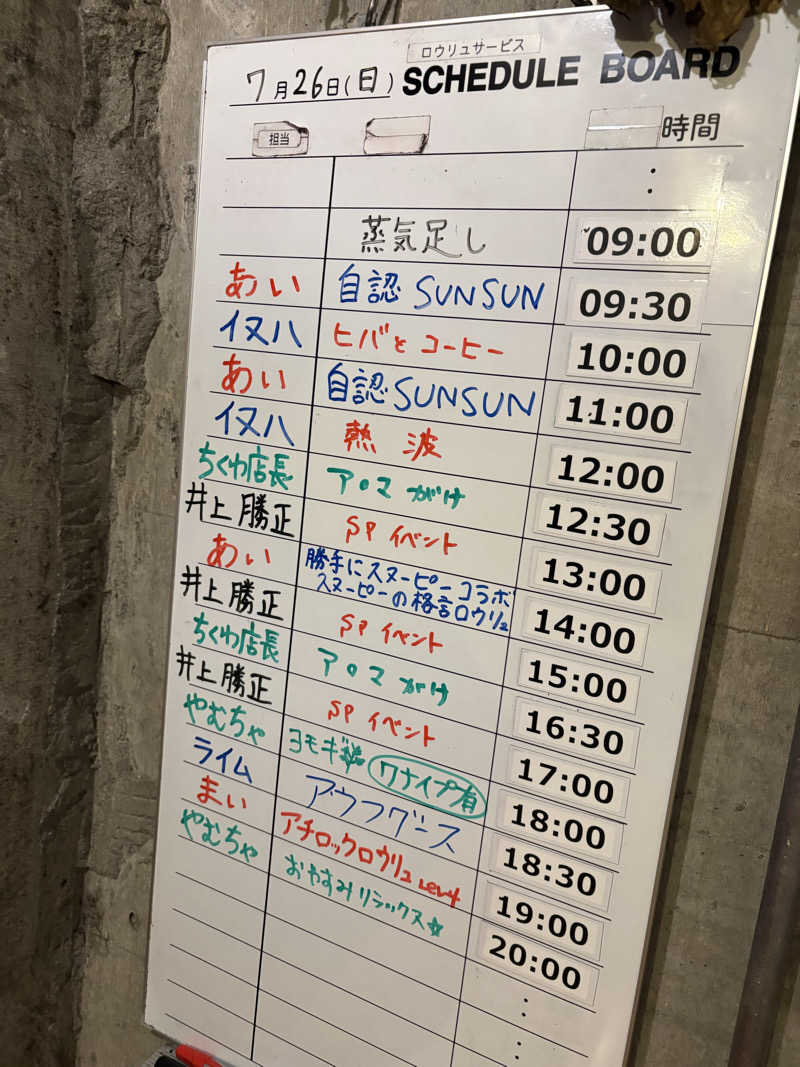 ロウリュサービス
7月26日(日) SCHEDULE BOARD
担当 時間
:
蒸気足し 09:00
あい 自認 SUNSUN 09:30
イヌハ ヒバとコーヒー 10:00
あい 自認 SUNSUN 11:00
イヌハ 熱波 12:00
ちくわ店長 アロマがけ 12:30
井上勝正 SPイベント 13:00
あい 勝手にスヌーピーコラボ 14:00
スヌーピーの格言ロウリュ
井上勝正 SPイベント 15:00
ちくわ店長 アロマがけ 16:30
井上勝正 SPイベント 17:00
やむちゃ ヨモギ ワナイプ有 18:00
ライム アウフグース 18:30
まい アチロックロウリュ Lev4 19:00
やむちゃ おやすみリラックス☆ 20:00
:
: